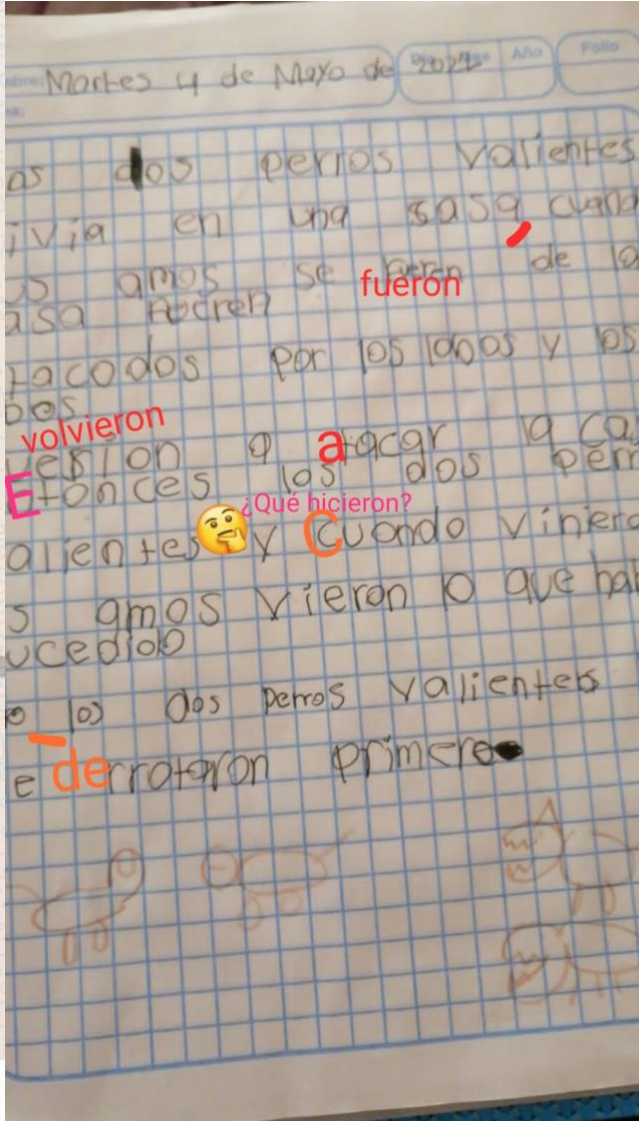 Martes 4 de Mayo de 2021
Año Folio
os dos perros valientes
ivia en una sasa, cuand
os amos se fueron de la
asa
tacodos por los lobos y los
bos
volvieron
a atacar la ca
Etonces los dos perr
¿Qué hicieron?
alientes 🤔 y Cuando viniero
s amos vieron lo que hab
ucedido
e los dos perros valientes
e derrotaron primero